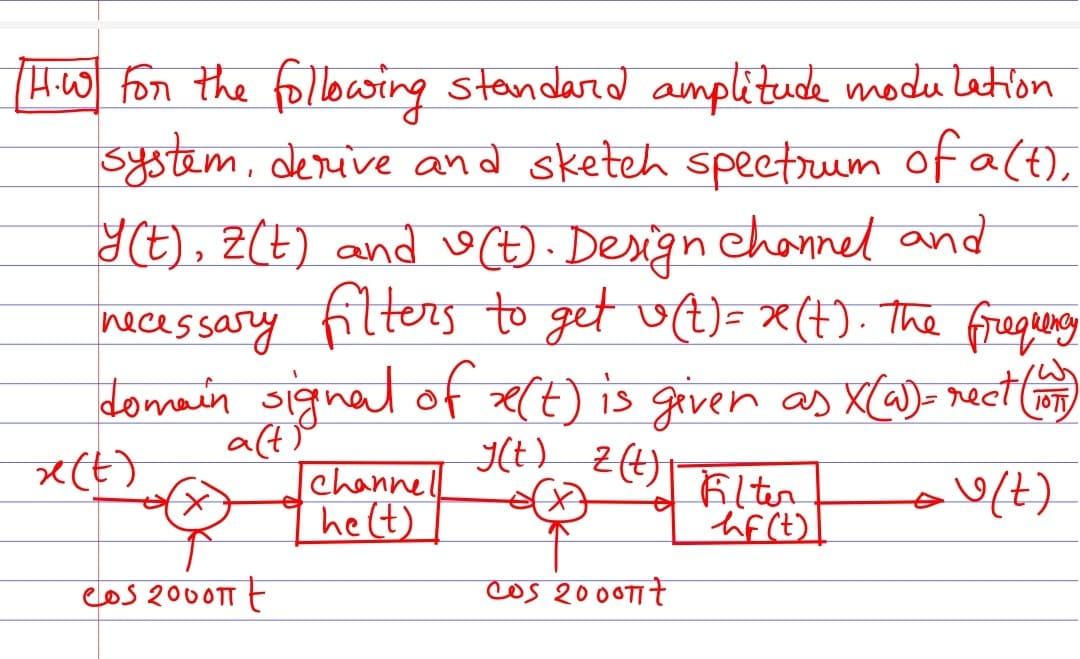 H.W For the following standard amplitude modulation
system, derive and sketch spectrum of a(t),
y(t), z(t) and v(t). Design channel and
necessary filters to get v(t)= x(t). The frequency
domain signal of x(t) is given as X(ω)= rect(ω/10π)
x(t) a(t) channel hc(t) y(t) z(t) Filter hF(t) v(t)
cos 2000πt cos 2000πt